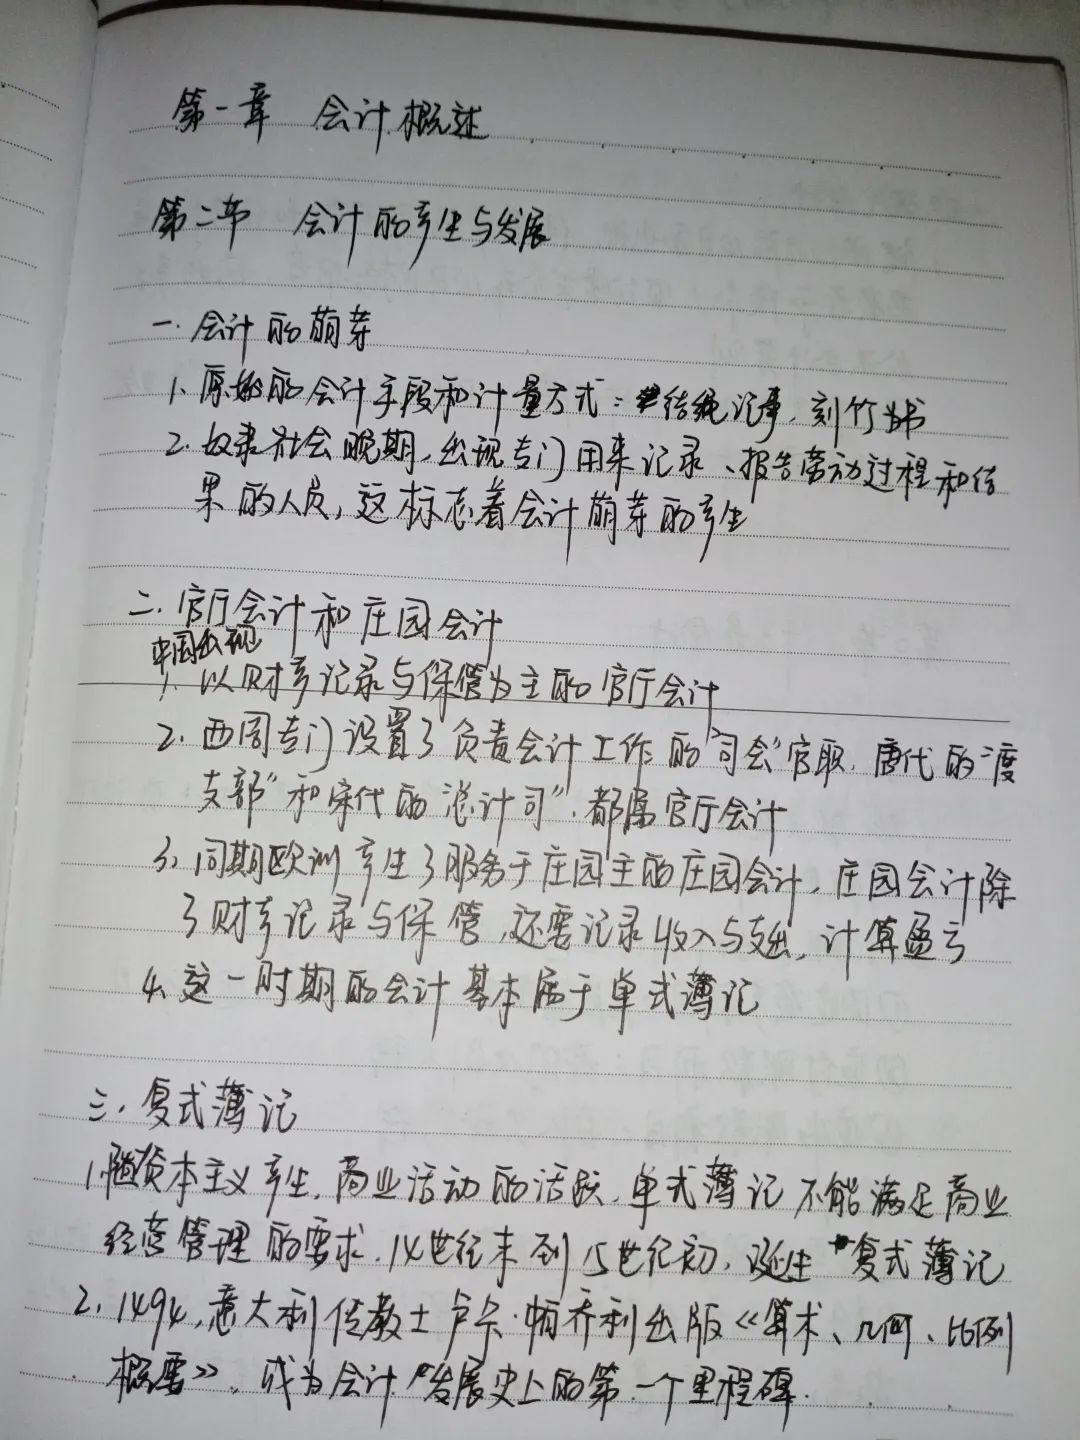 第一章 会计概述
第二节 会计的产生与发展
一. 会计的萌芽
1. 原始的会计手段和计量方式：结绳记事，刻竹为书
2. 奴隶社会晚期，出现专门用来记录、报告劳动过程和结
果的人员，这标志着会计萌芽的产生
二. 官厅会计和庄园会计
中国出现
1. 以财产记录与保管为主的官厅会计
2. 西周专门设置了负责会计工作的"司会"官职，唐代的"度
支部"和宋代的"总计司"，都属官厅会计
3. 同期欧洲产生了服务于庄园主的庄园会计，庄园会计除
了财产记录与保管，还要记录收入与支出，计算盈亏
4. 这一时期的会计基本属于单式薄记
三. 复式薄记
1. 随资本主义产生，商业活动的活跃，单式薄记不能满足商业
经营管理的要求，14世纪末到15世纪初，诞生"复式薄记
2. 1494，意大利传教士卢卡·帕乔利出版《算术、几何、比例
概要》，成为会计发展史上的第一个里程碑.